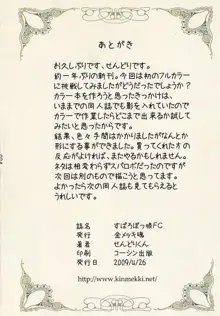 あとがき
お久しぶりです、せんどりです。
約一年ぶりの新刊。今回は初のフルカラー
に挑戦してみましたがどうだったでしょうか？
カラー本を作ろうと思ったきっかけは、
いままでの同人誌でも影を入れていたので
カラーで作業したらどこまで出来るか試し
てみたいと思ったからです。
結果、色々手間はかかりましたがなんとか
形にする事ができました。これを買ってすぐの
反応がよければ、またやるかもしれません。
ネタは相変わらずスパロボだったのですが
次回は別のもので描こうと思ってます。
よかったら次の同人誌も見てもらえると
うれしいです。
誌名　すぱろぼっ娘FC
発行　金メッキ魂
著者　せんどりくん
印刷　コーシン出版
発行日　2009/4/26
http://www.kinmekki.net/